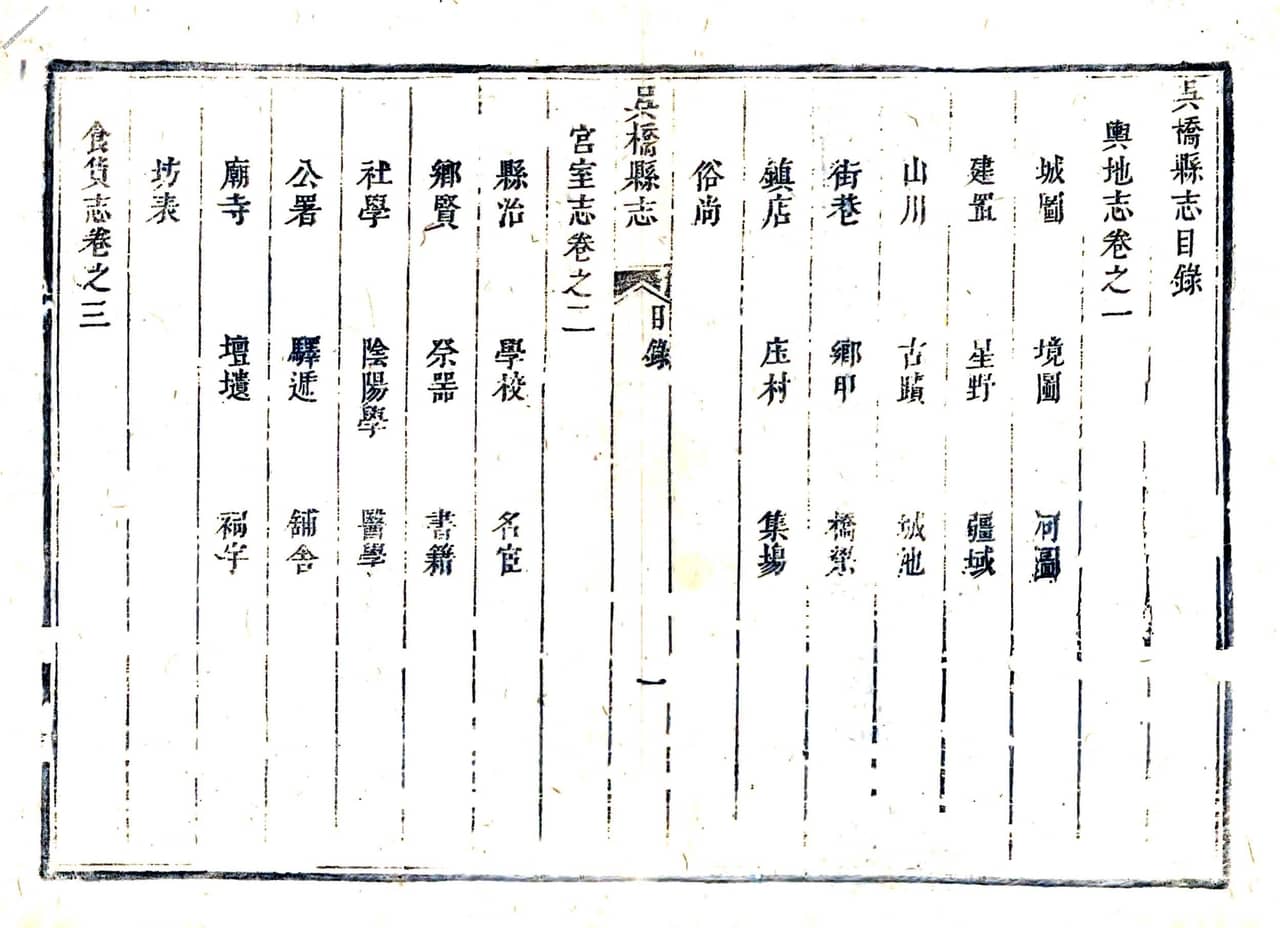 吳橋縣志目錄
輿地志卷之一
城圖 境圖 河圖
建置 星野 疆域
山川 古蹟 城池
街巷 鄉甲 橋梁
鎮店 庄村 集場
俗尚
吳橋縣志 目錄 一
宮室志卷之二
縣治 學校 名宦
鄉賢 祭器 書籍
社學 陰陽學 醫學
公署 驛遞 舖舍
廟寺 壇壝 祠宇
坊表
食貨志卷之三